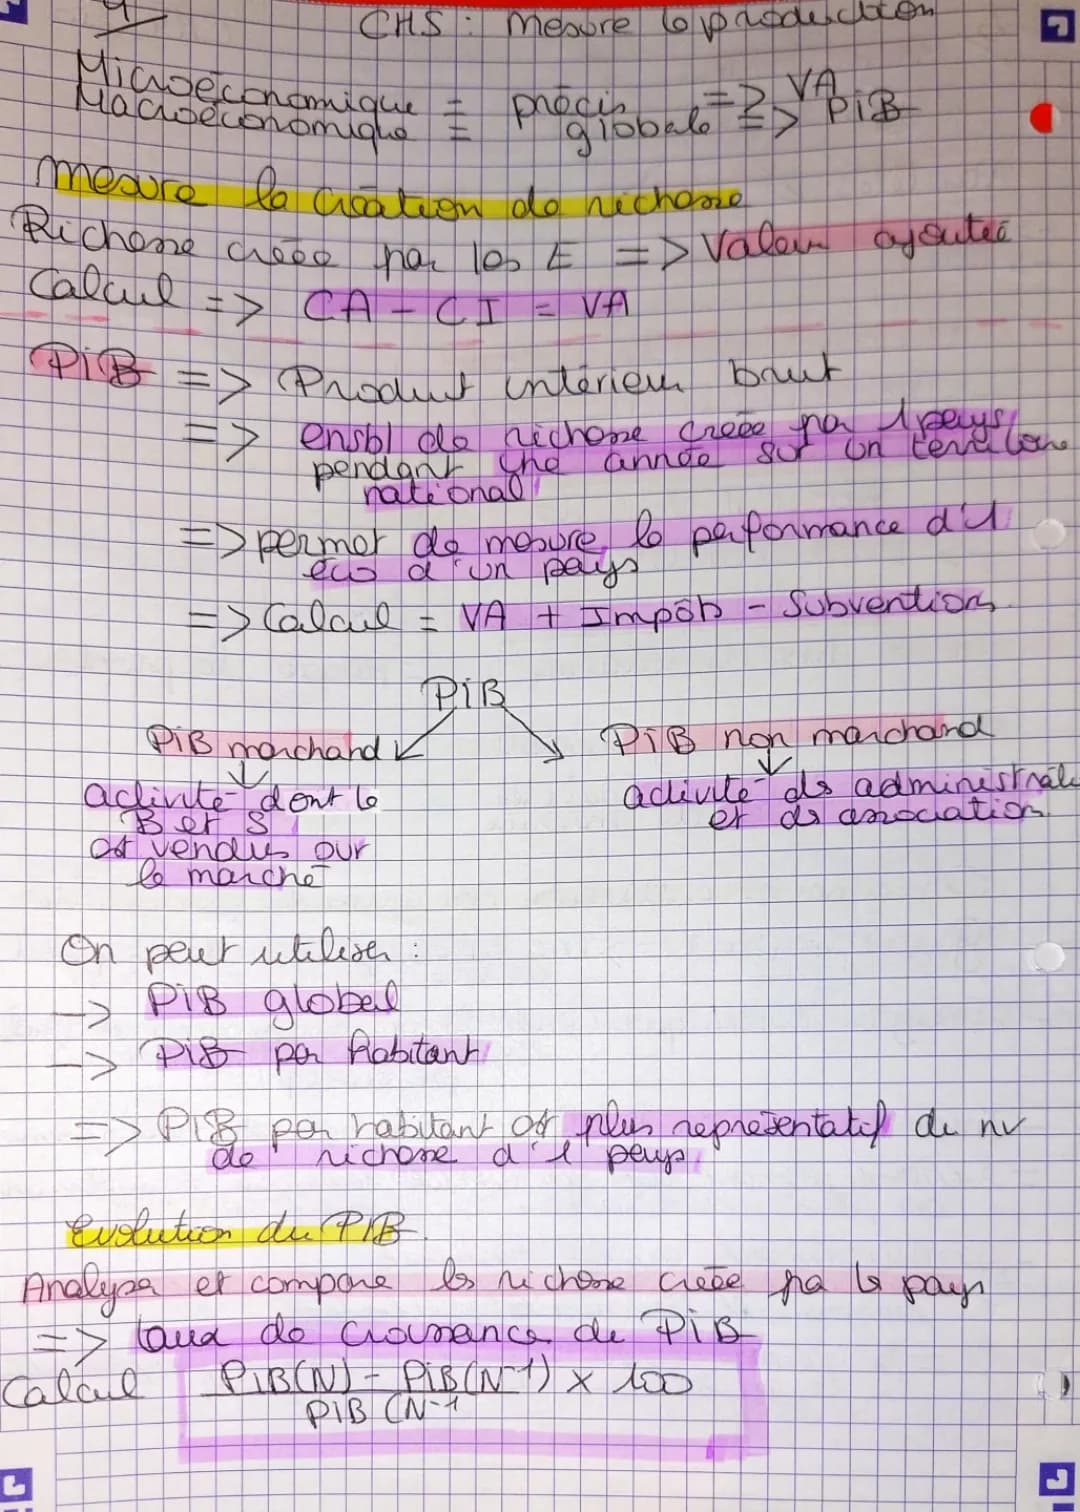 CH5 : Mesure la production
Microéconomique = précis => VA
Macroéconomique = globale => PiB
Mesure la création de richesse
Richesse créée par les E => Valeur ajoutée
Calcul => CA - CI = VA
PiB => Produit intérieur brut
=> ensbl de richesse créée par 1 pays
pendant une année sur un territoire
national
=> permet de mesure la performance d'1
éco d'un pays
=> Calcul = VA + Impôts - Subventions
PiB
PiB marchand
PiB non marchand
activité dont le
B et S
est vendus sur
le marché
activité ds administrati
et ds association
On peut utiliser :
-> PiB global
-> PiB par habitant
=> PiB par habitant est plus représentatif du nv
de richesse d'1 pays
Evolution du PIB
Analyse et compare les richesse créée par le pays
=> taux de croissance du PiB
Calcul PiB(N) - PiB(N-1) x 100
PIB (N-1